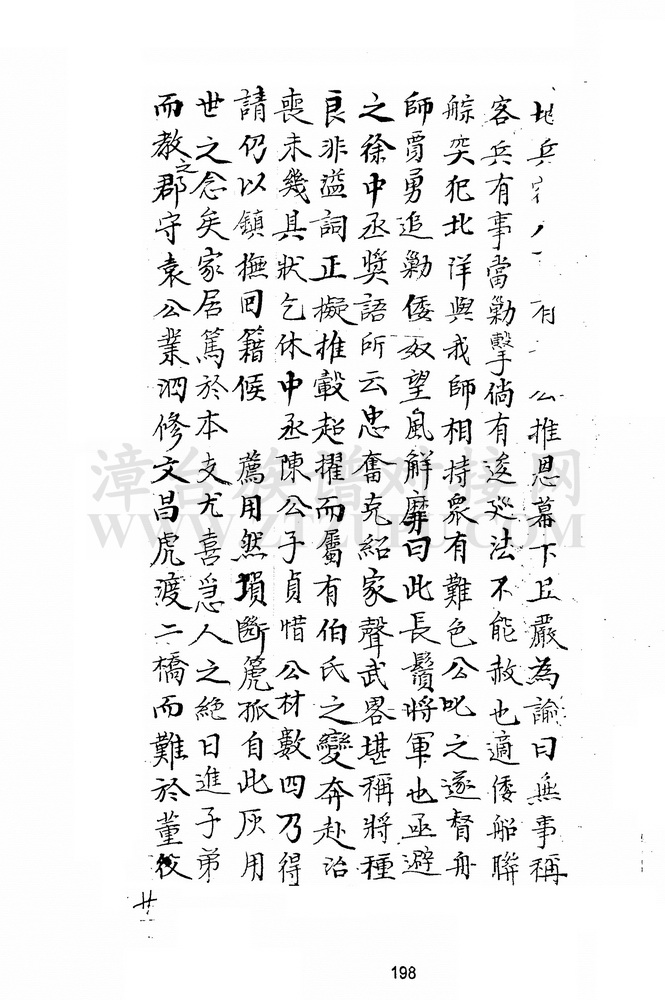 地兵家 有 公推恩幕下且嚴為諭曰無事稱
客兵有事當勦擊倘有逡巡法不能赦也適倭船聯
䑸突犯北洋與我師相持眾有難色公叱之遂督舟
師賈勇追勦倭奴望風解靡曰此長鬚將軍也亟避
之徐中丞獎語所云忠奮克紹家聲武畧堪稱將種
良非溢詞正擬推轂超擢而屬有伯氏之變奔赴治
喪未幾具狀乞休中丞陳公子貞惜公材數四乃得
請仍以鎮撫回籍候 薦用然瑣斷䇶孤自此灰用
世之念矣家居篤於本支尤喜急人之絕日進子弟
而教之郡守袁公業泗修文昌虎渡二橋而難於董役
廿
198
漳台族譜对接网
WWW.ZTZUPU.COM